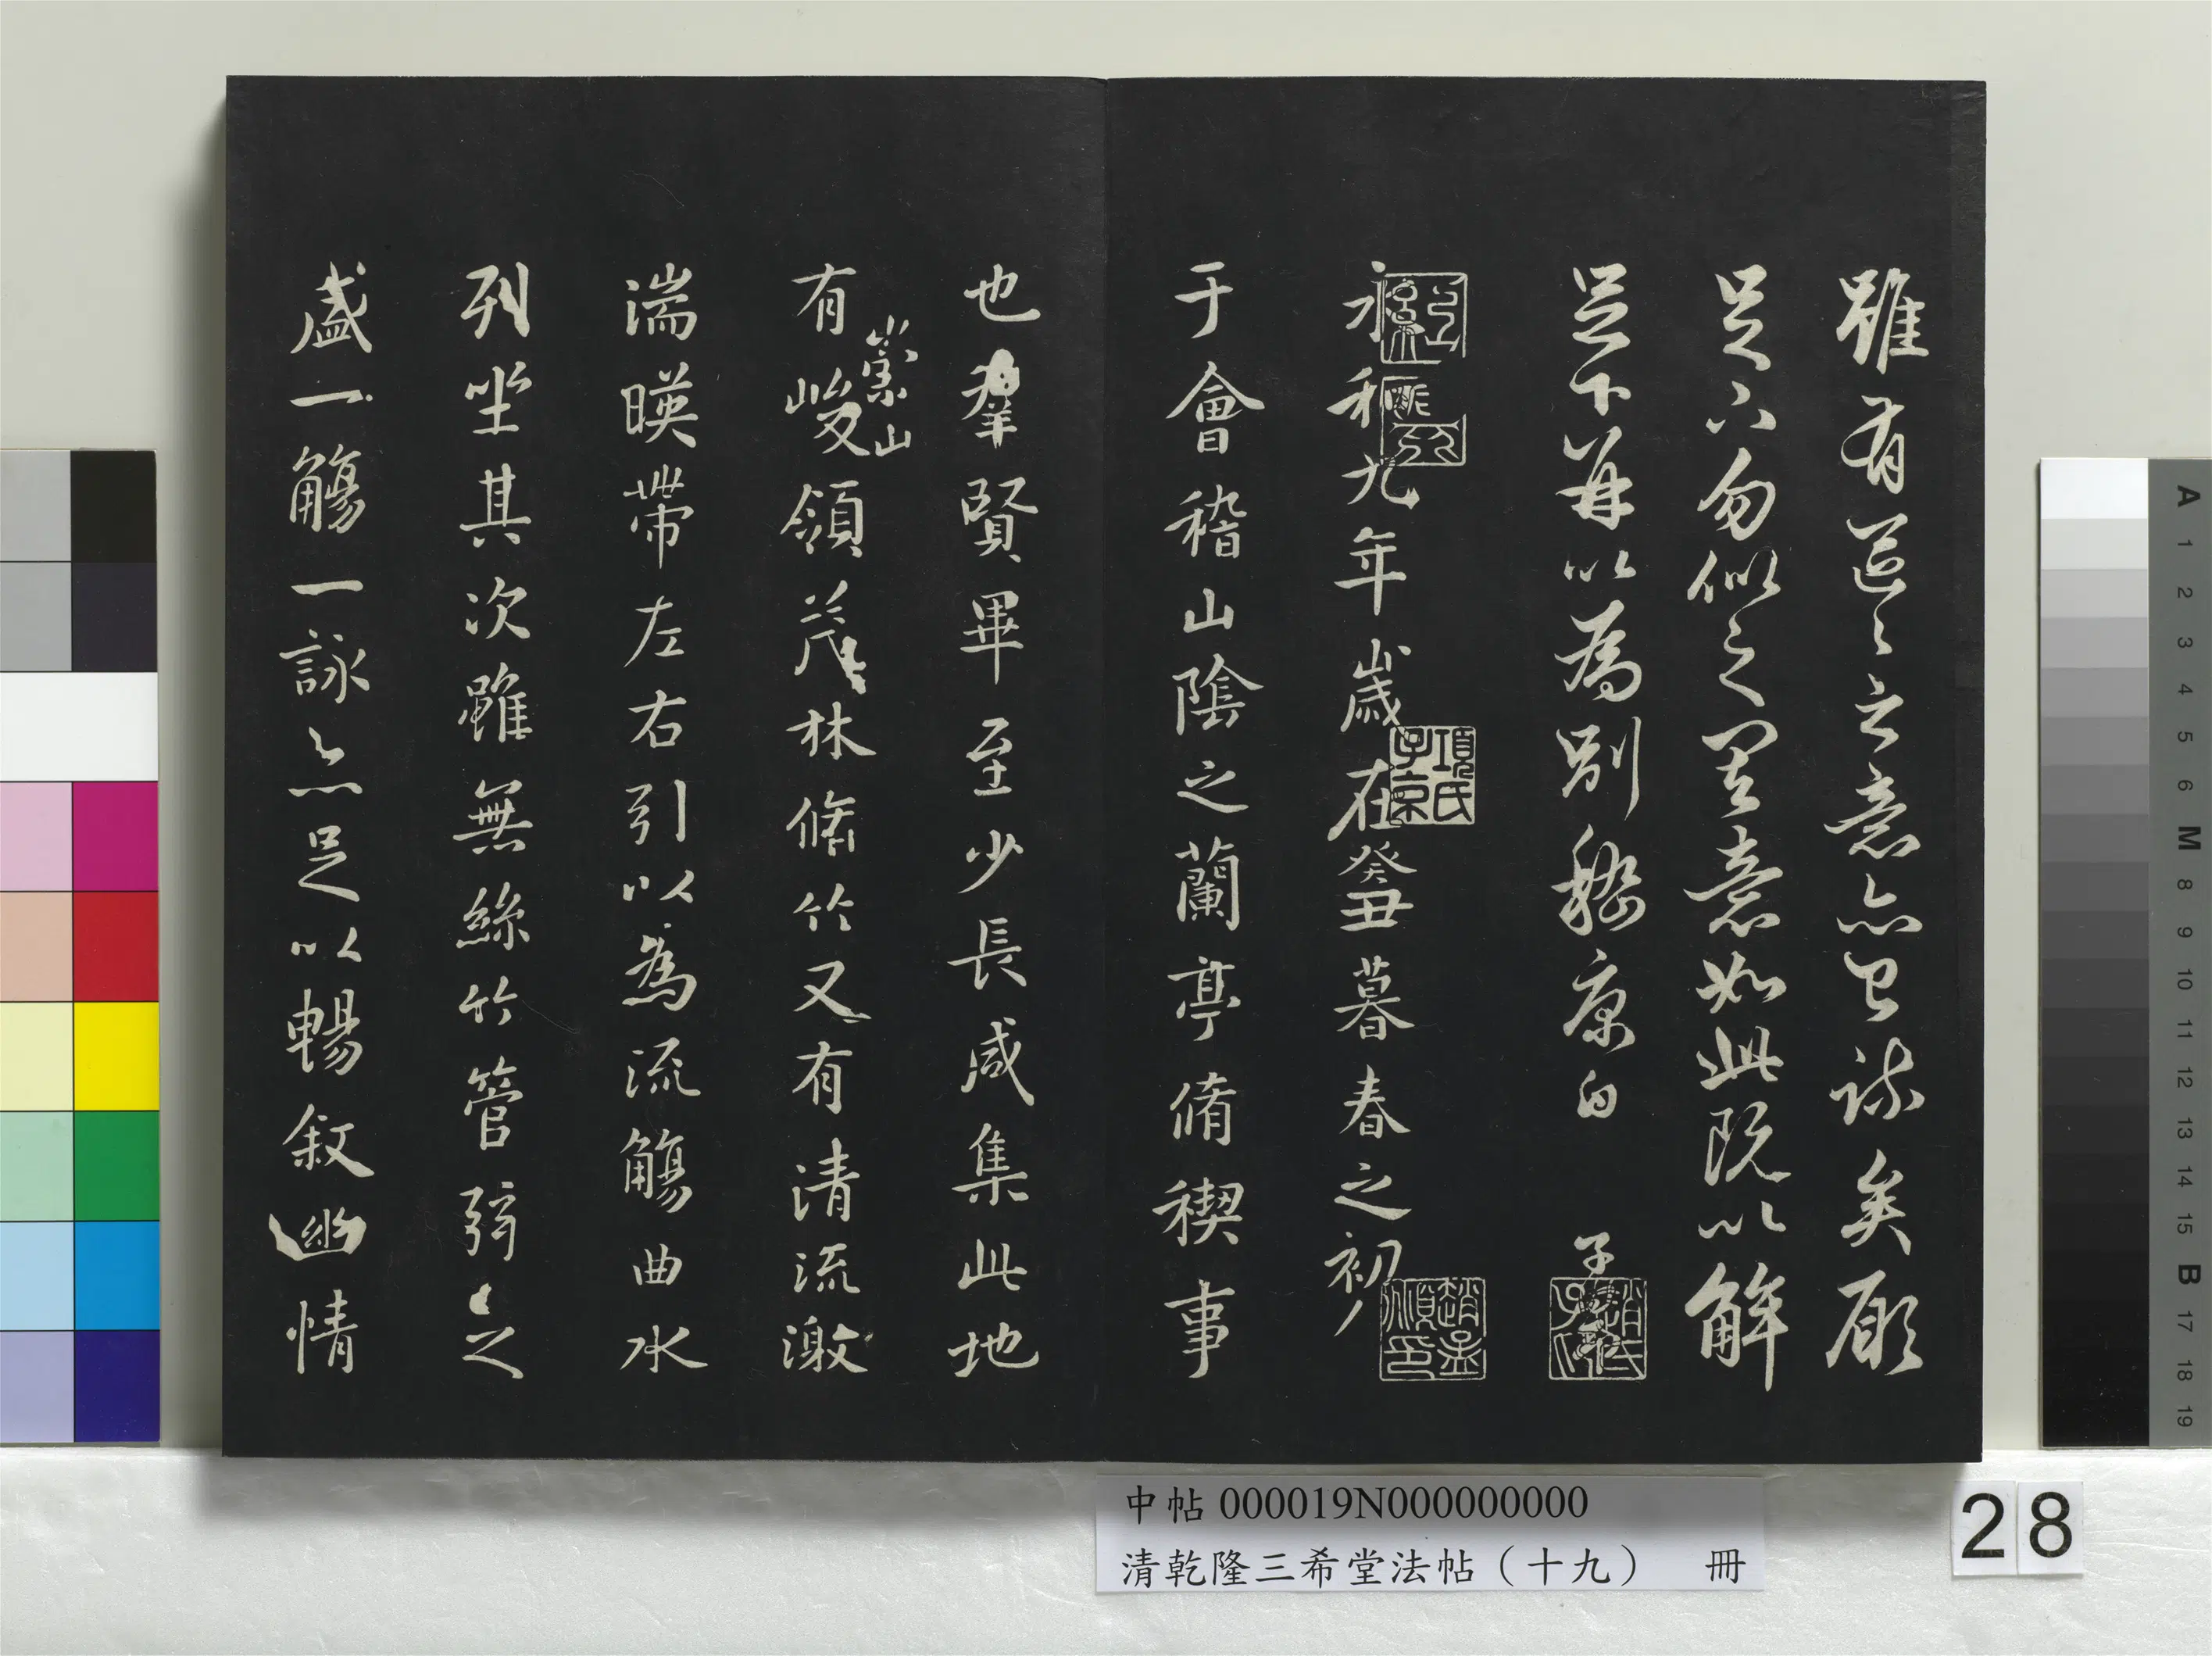 雖有區區之意亦已疎矣願
足下勿似之其意如此既以解
足下并以為別嵇康白 子昂
永和九年歲在癸丑暮春之初
于會稽山陰之蘭亭脩禊事
也羣賢畢至少長咸集此地
有崇山峻領茂林脩竹又有清流激
湍暎帶左右引以為流觴曲水
列坐其次雖無絲竹管弦之
盛一觴一詠亦足以暢敘幽情
項氏子京
趙孟頫印
趙氏子昂
中帖 000019N000000000
清乾隆三希堂法帖（十九） 冊
28
A 1 2 3 4 5 6 M 8 9 10 11 12 13 14 15 B 17 18 19